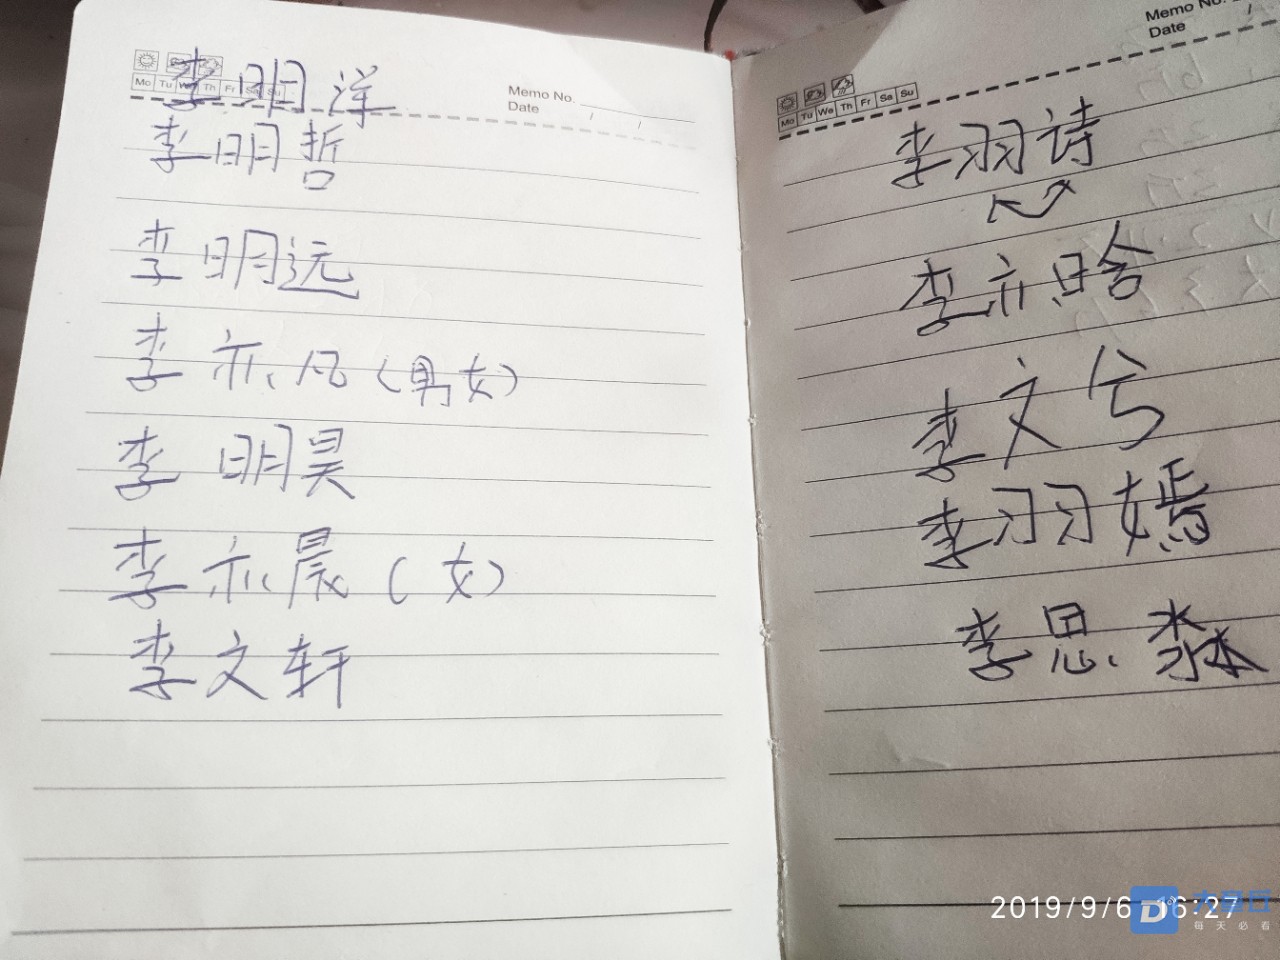 李明洋
Mo Tu We Th Fr Sa Su
Memo No.
Date / /
李明哲
李明远
李亦凡(男女)
李明昊
李亦晨(女)
李文轩
Memo No.
Date /
Mo Tu We Th Fr Sa Su
李羽诗
李亦晗
李文兮
李羽嫣
李思淼
2019/9/6 16:27
大章丘
每天必看